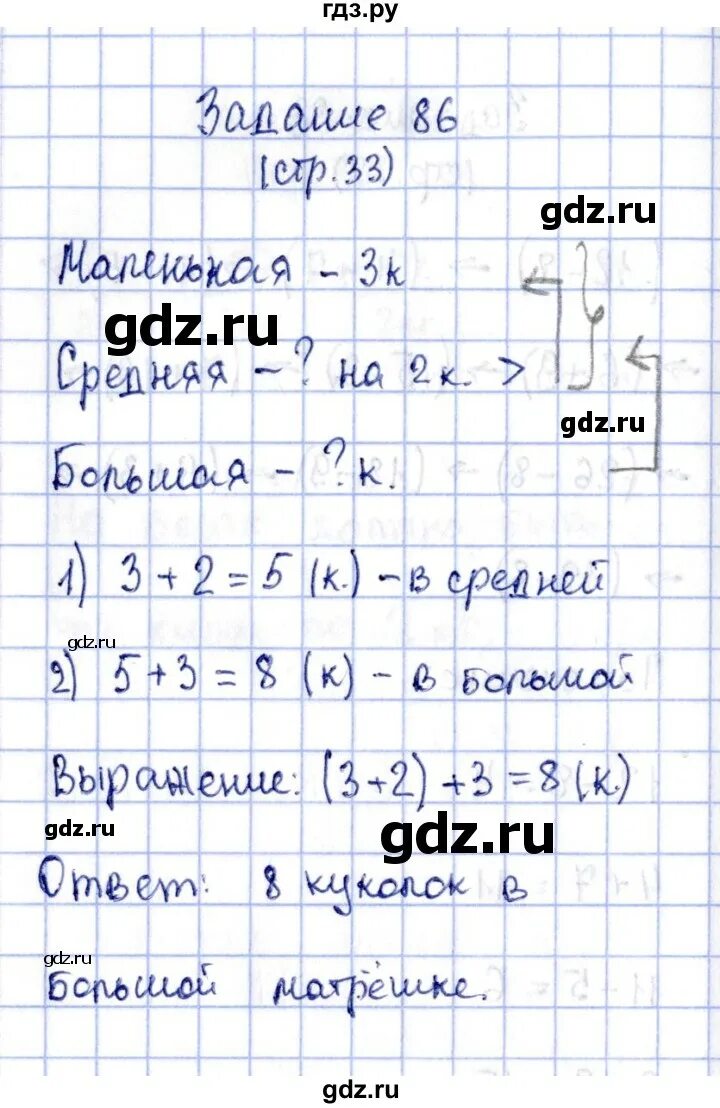 гдз.ру
Задание 86
(стр.33)
gdz.ru
Маленькая - 3к
gdz.ru
Средняя - ? на 2к. >
gdz.ru
Большая - ? к.
1) 3 + 2 = 5 (к.) - в средней
gdz.ru
2) 5 + 3 = 8 (к) - в большой
Выражение: (3+2) + 3 = 8 (к.)
gdz.ru
gdz.ru
Ответ: 8 куколок в
gdz.ru
большой матрёшке.
gdz.ru